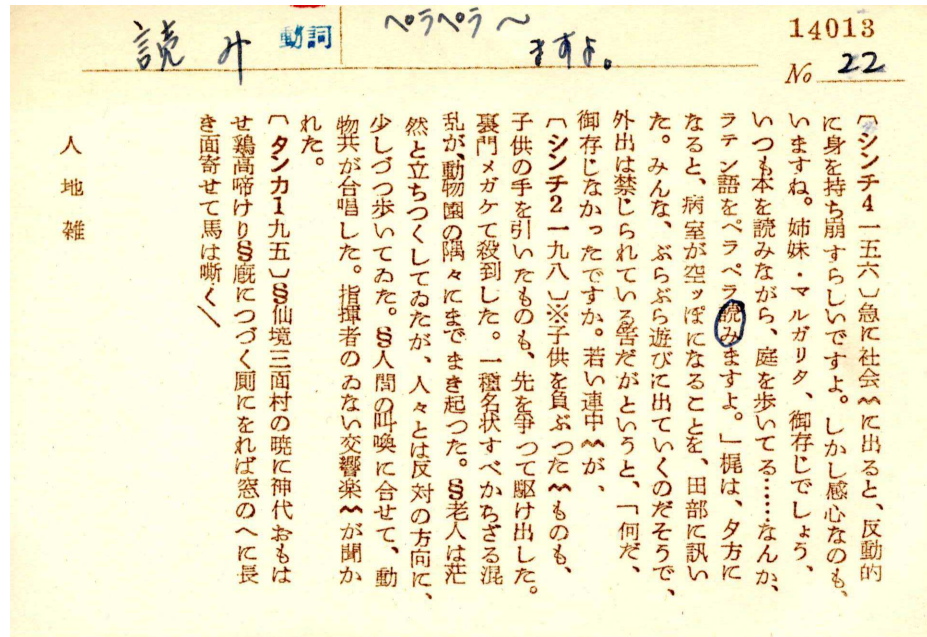 読み
動詞
ペラペラ〜
ますよ。
14013
No 22
〔シンチ4 一五六〕急に社会〰に出ると、反動的
に身を持ち崩すらしいですよ。しかし感心なのも、
いますね。姉妹・マルガリタ、御存じでしょう、
いつも本を読みながら、庭を歩いてる……なんか、
ラテン語をペラペラ読みますよ。」梶は、夕方に
なると、病室が空ッぽになることを、田部に訊い
た。みんな、ぶらぶら遊びに出ていくのだそうで、
外出は禁じられている筈だがというと、「何だ、
御存じなかったですか。若い連中〰が、
〔シンチ2 一九八〕※子供を負ぶつた〰ものも、
子供の手を引いたものも、先を争つて駆け出した。
裏門メガケて殺到した。一種名状すべからざる混
乱が、動物園の隅々にまでまき起つた。§老人は茫
然と立ちつくしてゐたが、人々とは反対の方向に、
少しづつ歩いてゐた。§人間の叫喚に合せて、動
物共が合唱した。指揮者のゐない交響楽〰が聞か
れた。
〔タンカ1 九五〕§仙境三面村の暁に神代おもは
せ鶏高啼けり§廐につづく厠にをれば窓のへに長
き面寄せて馬は嘶く〵
人地雑